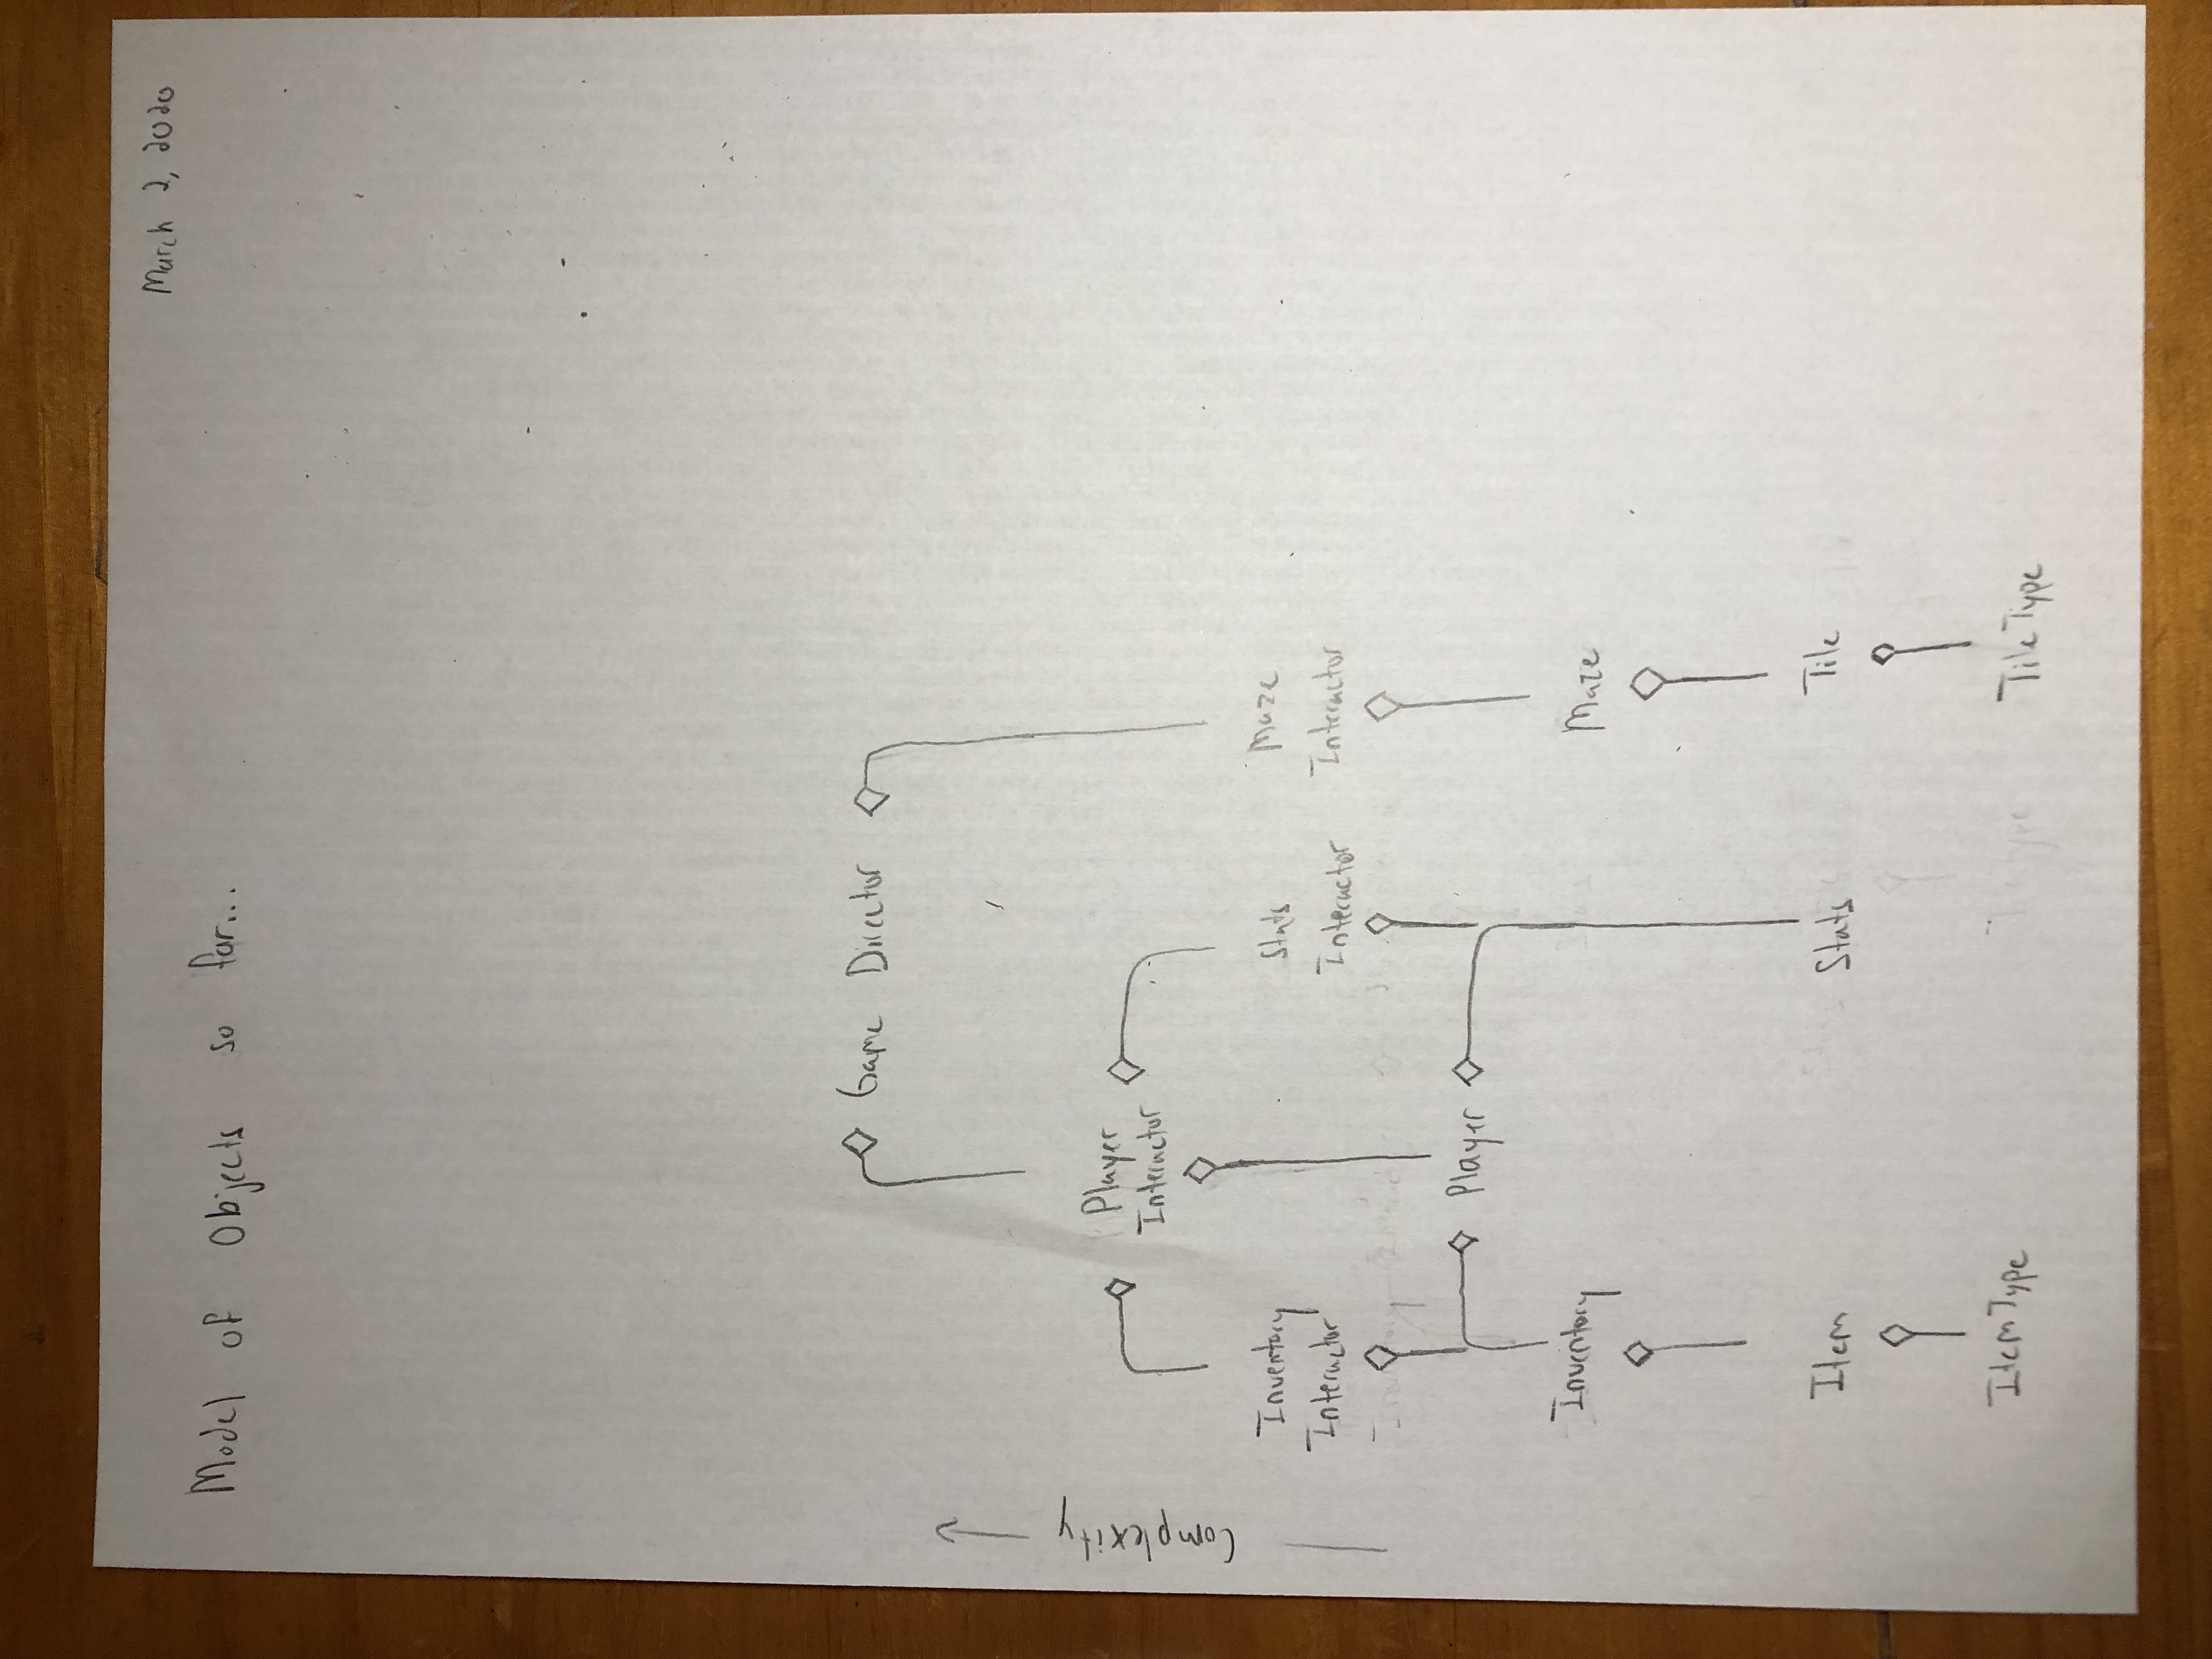 March 2, 2020
Model of Objects so far...
Game Director
Complexity
Player
Interactor
Inventory
Interactor
Stats
Interactor
Maze
Interactor
Player
Inventory
Maze
Item
Stats
Tile
ItemType
TileType